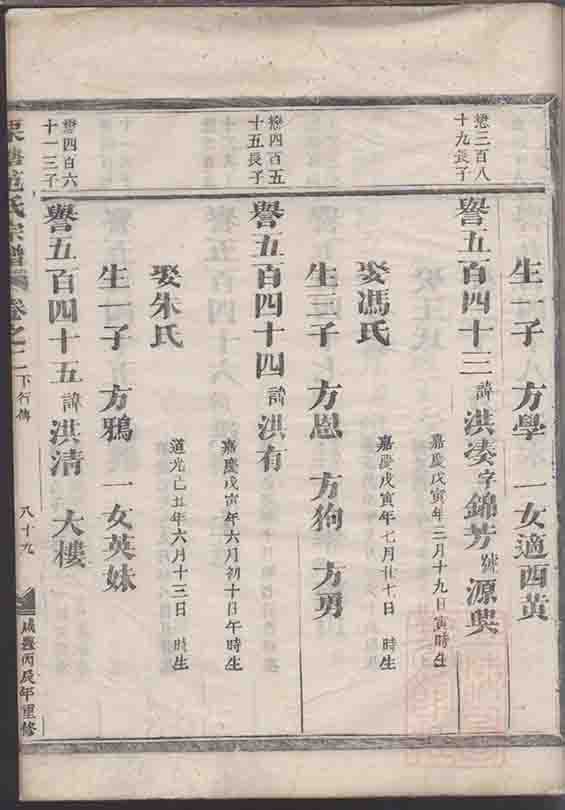 生一子 方學 一女適西黃
懋三百八
十九長子
譽五百四十三 諱洪湊字錦芳號源興
嘉慶戊寅年三月十九日寅時生
娶馮氏
嘉慶戊寅年七月廿七日 時生
生三子 方恩 方狗 方勇
懋四百五
十五長子
譽五百四十四 諱洪有
嘉慶戊寅年六月初十日午時生
娶朱氏
道光己丑年六月十三日 時生
生一子 方鴉 一女英妹
懋四百六
十一三子
譽五百四十五 諱洪清 大樓
氏宗譜 卷之二 下行傳 八十九 咸豐丙辰年重修